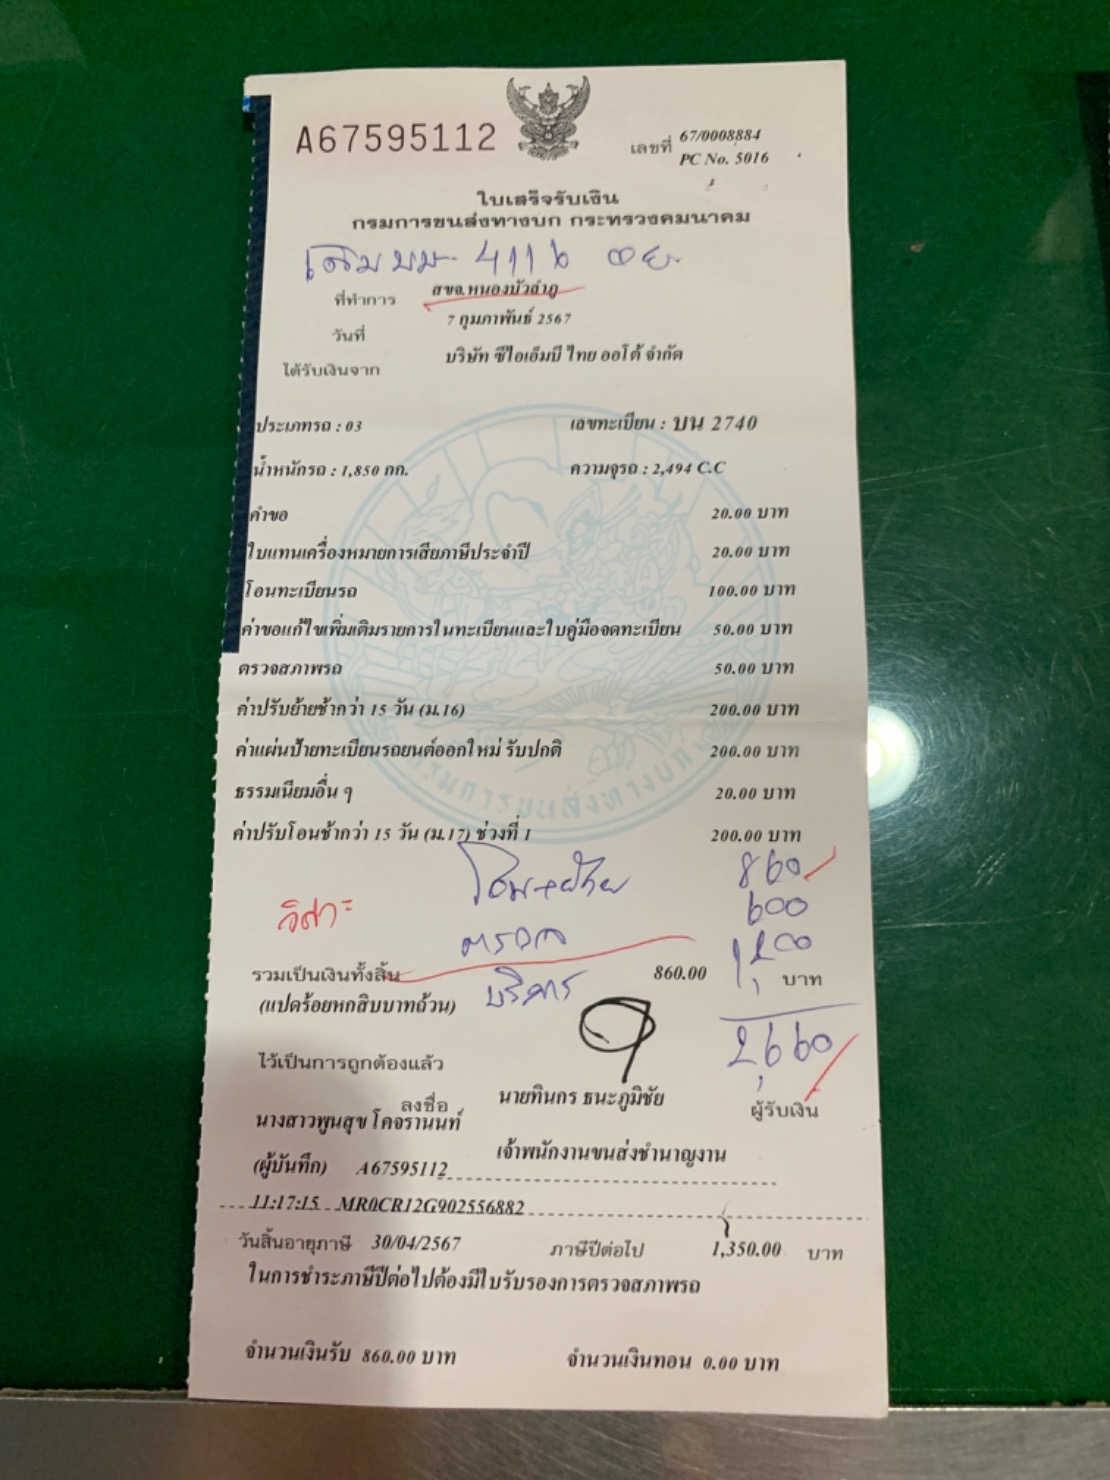 A67595112
เลขที่ 67/0008884
PC No. 5016
ใบเสร็จรับเงิน
กรมการขนส่งทางบก กระทรวงคมนาคม
เดิม บม- 4116 อย.
ที่ทำการ สขจ.หนองบัวลำภู
วันที่ 7 กุมภาพันธ์ 2567
ได้รับเงินจาก บริษัท ซีไอเอ็มบี ไทย ออโต้ จำกัด
ประเภทรถ : 03 เลขทะเบียน : บน 2740
น้ำหนักรถ : 1,850 กก. ความจุรถ : 2,494 C.C
คำขอ 20.00 บาท
ใบแทนเครื่องหมายการเสียภาษีประจำปี 20.00 บาท
โอนทะเบียนรถ 100.00 บาท
ค่าขอแก้ไขเพิ่มเติมรายการในทะเบียนและใบคู่มือจดทะเบียน 50.00 บาท
ตรวจสภาพรถ 50.00 บาท
ค่าปรับย้ายช้ากว่า 15 วัน (ม.16) 200.00 บาท
ค่าแผ่นป้ายทะเบียนรถยนต์ออกใหม่ รับปกติ 200.00 บาท
ธรรมเนียมอื่น ๆ 20.00 บาท
ค่าปรับโอนช้ากว่า 15 วัน (ม.17) ช่วงที่ 1 200.00 บาท
กรมการขนส่งทางบก
โอน+ย้าย 860
ตรวจ 600
รวมเป็นเงินทั้งสิ้น 860.00 บาท
บริการ 1,200
(แปดร้อยหกสิบบาทถ้วน)
2,660
ไว้เป็นการถูกต้องแล้ว
ลงชื่อ นายทินกร ธนะภูมิชัย ผู้รับเงิน
นางสาวพูนสุข โคจรานนท์
เจ้าพนักงานขนส่งชำนาญงาน
(ผู้บันทึก) A67595112
11:17:15 MR0CR12G902556882
วันสิ้นอายุภาษี 30/04/2567 ภาษีปีต่อไป 1,350.00 บาท
ในการชำระภาษีปีต่อไปต้องมีใบรับรองการตรวจสภาพรถ
จำนวนเงินรับ 860.00 บาท จำนวนเงินทอน 0.00 บาท